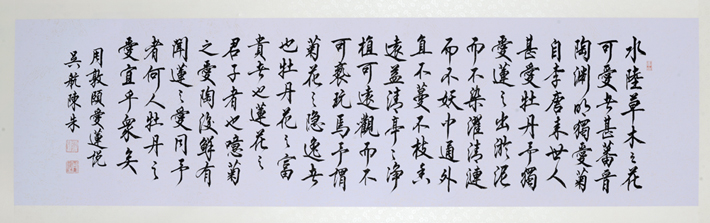 水陸草木之花
可愛者甚蕃晋
陶渊明獨愛菊
自李唐来世人
甚愛牡丹予獨
愛蓮之出淤泥
而不染濯清漣
而不妖中通外
直不蔓不枝香
遠益清亭々净
植可遠觀而不
可褻玩焉予謂
菊花之隐逸者
也牡丹花之富
貴者也蓮花之
君子者也噫菊
之愛陶後鮮有
聞蓮之愛同予
者何人牡丹之
愛宜乎衆矣
周敦頤愛蓮説
吴航陳朱